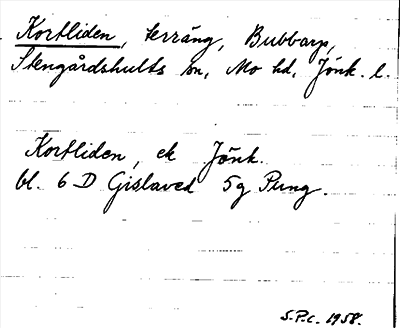 Kortliden, terräng, Bubbarp,
Stengårdshults sn, Mo hd, Jönk. l.
Kortliden, ek Jönk.
bl. 6 D Gislaved 5g Pung.
S.P.C. 1958.